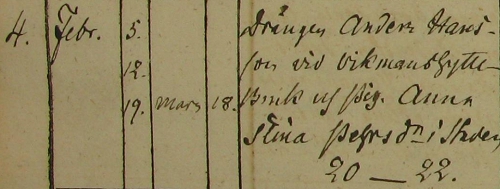 4. Febr. 5. Drängen Anders Hans-
12. son vid Vikmanshytte-
19. Mars 18. Bruk och Pig. Anna
Stina Pehrs dr i
20 — 22.